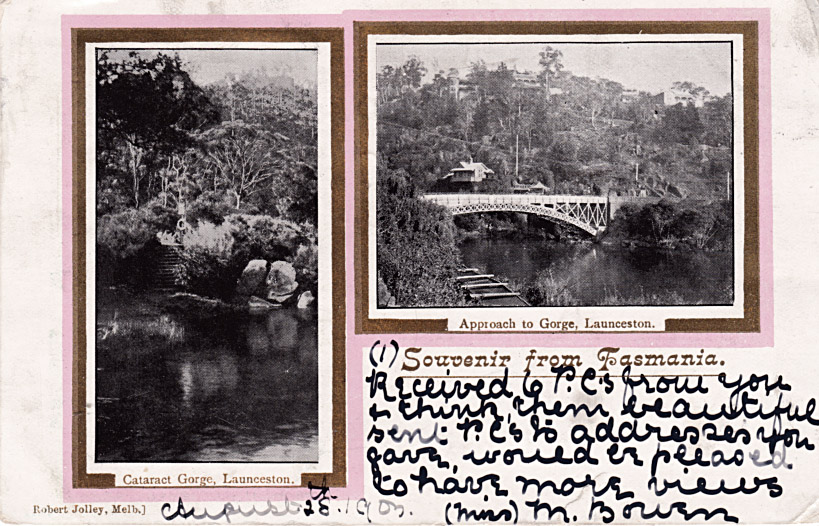 Approach to Gorge, Launceston.
(1) Souvenir from Tasmania.
Received 6 P.C's from you
& think them beautiful
sent P.C's to addresses you
gave, would be pleased
to have more views
(Miss) M. Bowen
Cataract Gorge, Launceston.
Robert Jolley, Melb.]
August